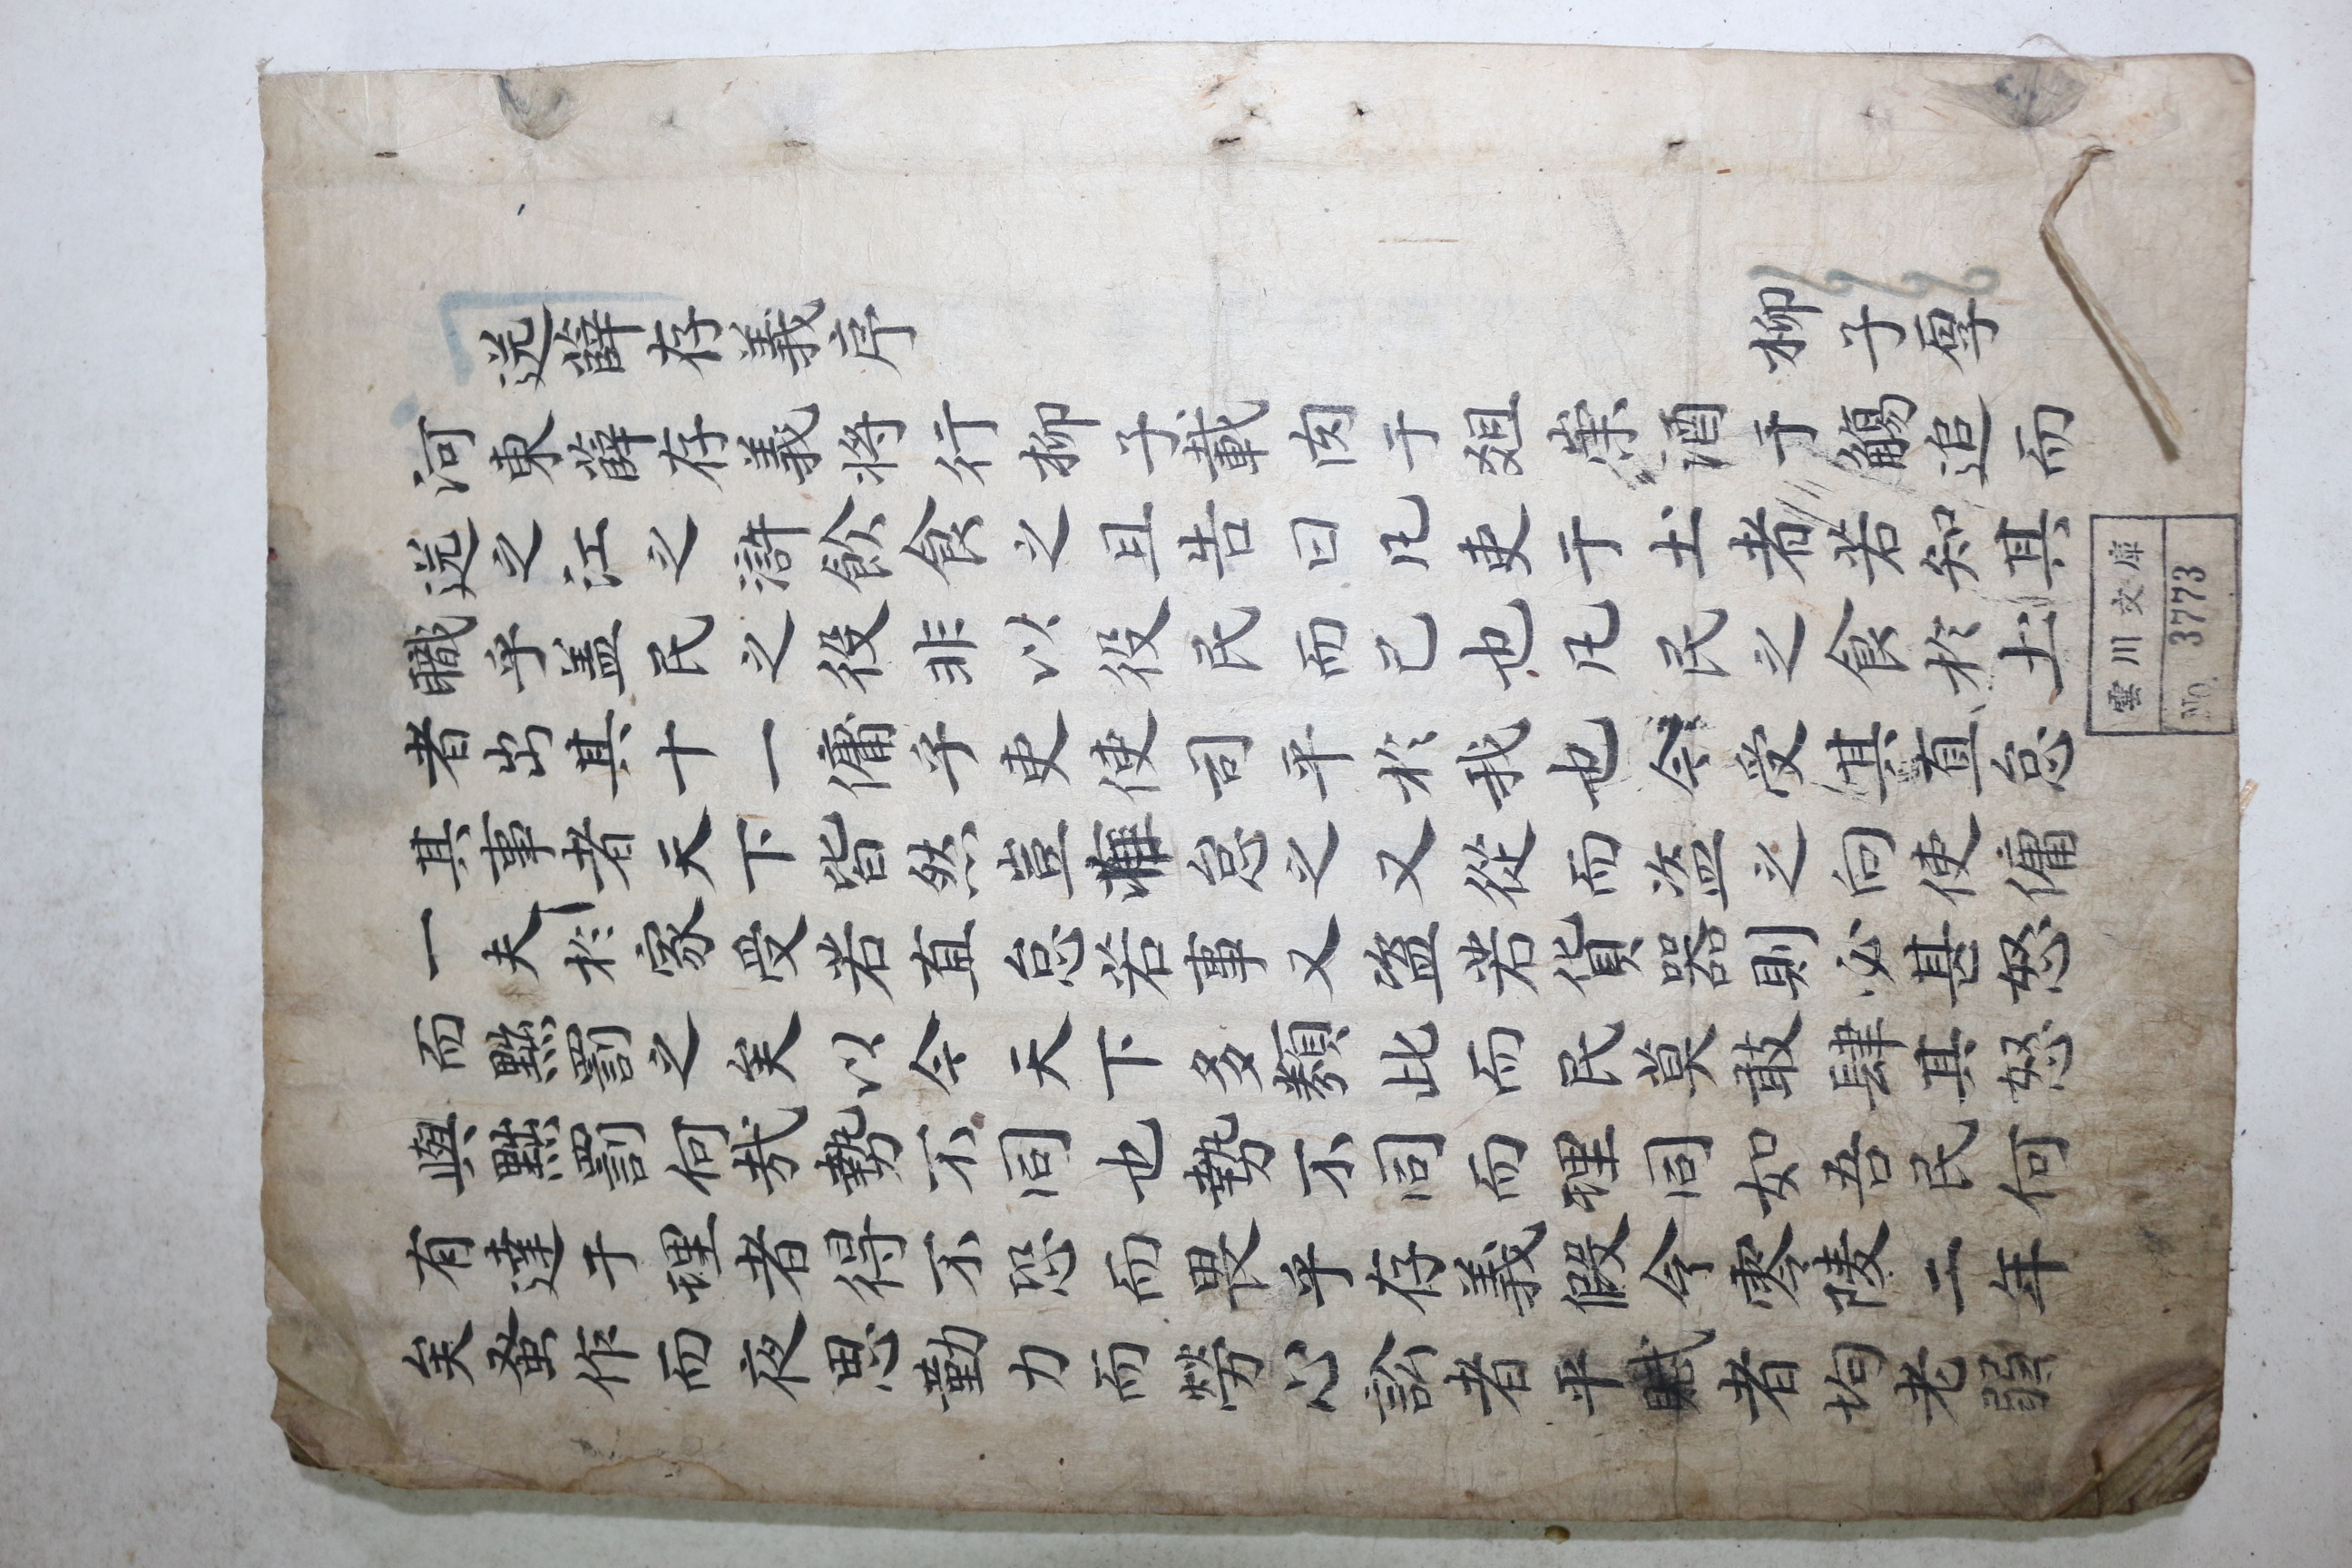 送薛存義序 柳子厚
河東薛存義將行柳子載肉于俎崇酒于觴追而
送之江之滸飮食之且告曰凡吏于土者若知其
職乎盖民之役非以役民而已也凡民之食於土
者出其十一傭乎吏使司平於我也今受其直怠
其事者天下皆然豈惟怠之又從而盜之向使傭
一夫於家受若直怠若事又盜若貨器則必甚怒
而黜罰之矣以今天下多類此而民莫敢肆其怒
與黜罰何哉勢不同也勢不同而理同如吾民何
有達于理者得不恐而畏乎存義假令零陵二年
矣蚤作而夜思勤力而勞心訟者平賦者均老弱
雲川文庫
No. 3773